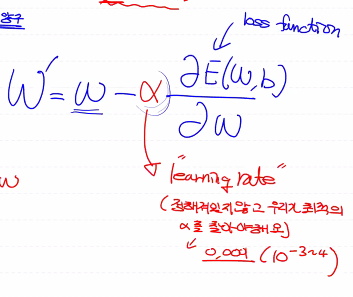 loss function
W' = w - α ∂E(w,b) / ∂w
"learning rate"
w
(정해져있지않고 우리가 최적의
α를 찾아야해요)
0.009 (10⁻³~4)